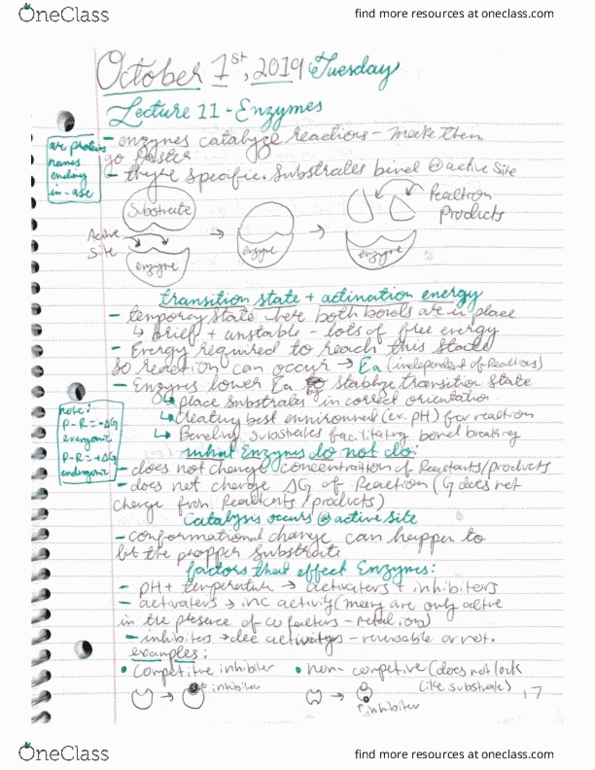 OneClass
find more resources at oneclass.com
October 1st, 2019 Tuesday
Lecture 11 - Enzymes
are proteins
names
ending
in -ase
- enzymes catalyze reactions - make them
go faster
- they're specific. Substrates bind @ active site
Substrate
Active
Site
enzyme
→
enzyme
→
enzyme
Reaction
Products
transition state + activation energy
- temporary state where both bonds are in place
↳ brief + unstable - lots of free energy
- Energy required to reach this state
so reaction can occur → Ea (independent of Reactions)
- Enzymes lower Ea stablize transition state
↳ place substrates in correct orientation
↳ Creating best environment (ex. pH) for reaction
↳ Bending substrates facilitating bond breaking
note:
P-R = -ΔG
exergonic
P-R = +ΔG
endergonic
what Enzymes do not do:
- does not change concentration of Reactants/products
- does not change ΔG of Reaction (G does not
change from Reactants/products)
Catalysis occurs @ active site
- conformational change can happen to
fit the propper substrate
factors that effect Enzymes:
- pH + temperature → activaters + inhibiters
- activaters → inc activity (many are only active
in the presence of co factors - metal ions)
- inhibites → dec - reversable or not.
examples:
• Competitive inhibiter
inhibiter
• non-competive (does not look
like substrate)
inhibiter
17
OneClass
find more resources at oneclass.com